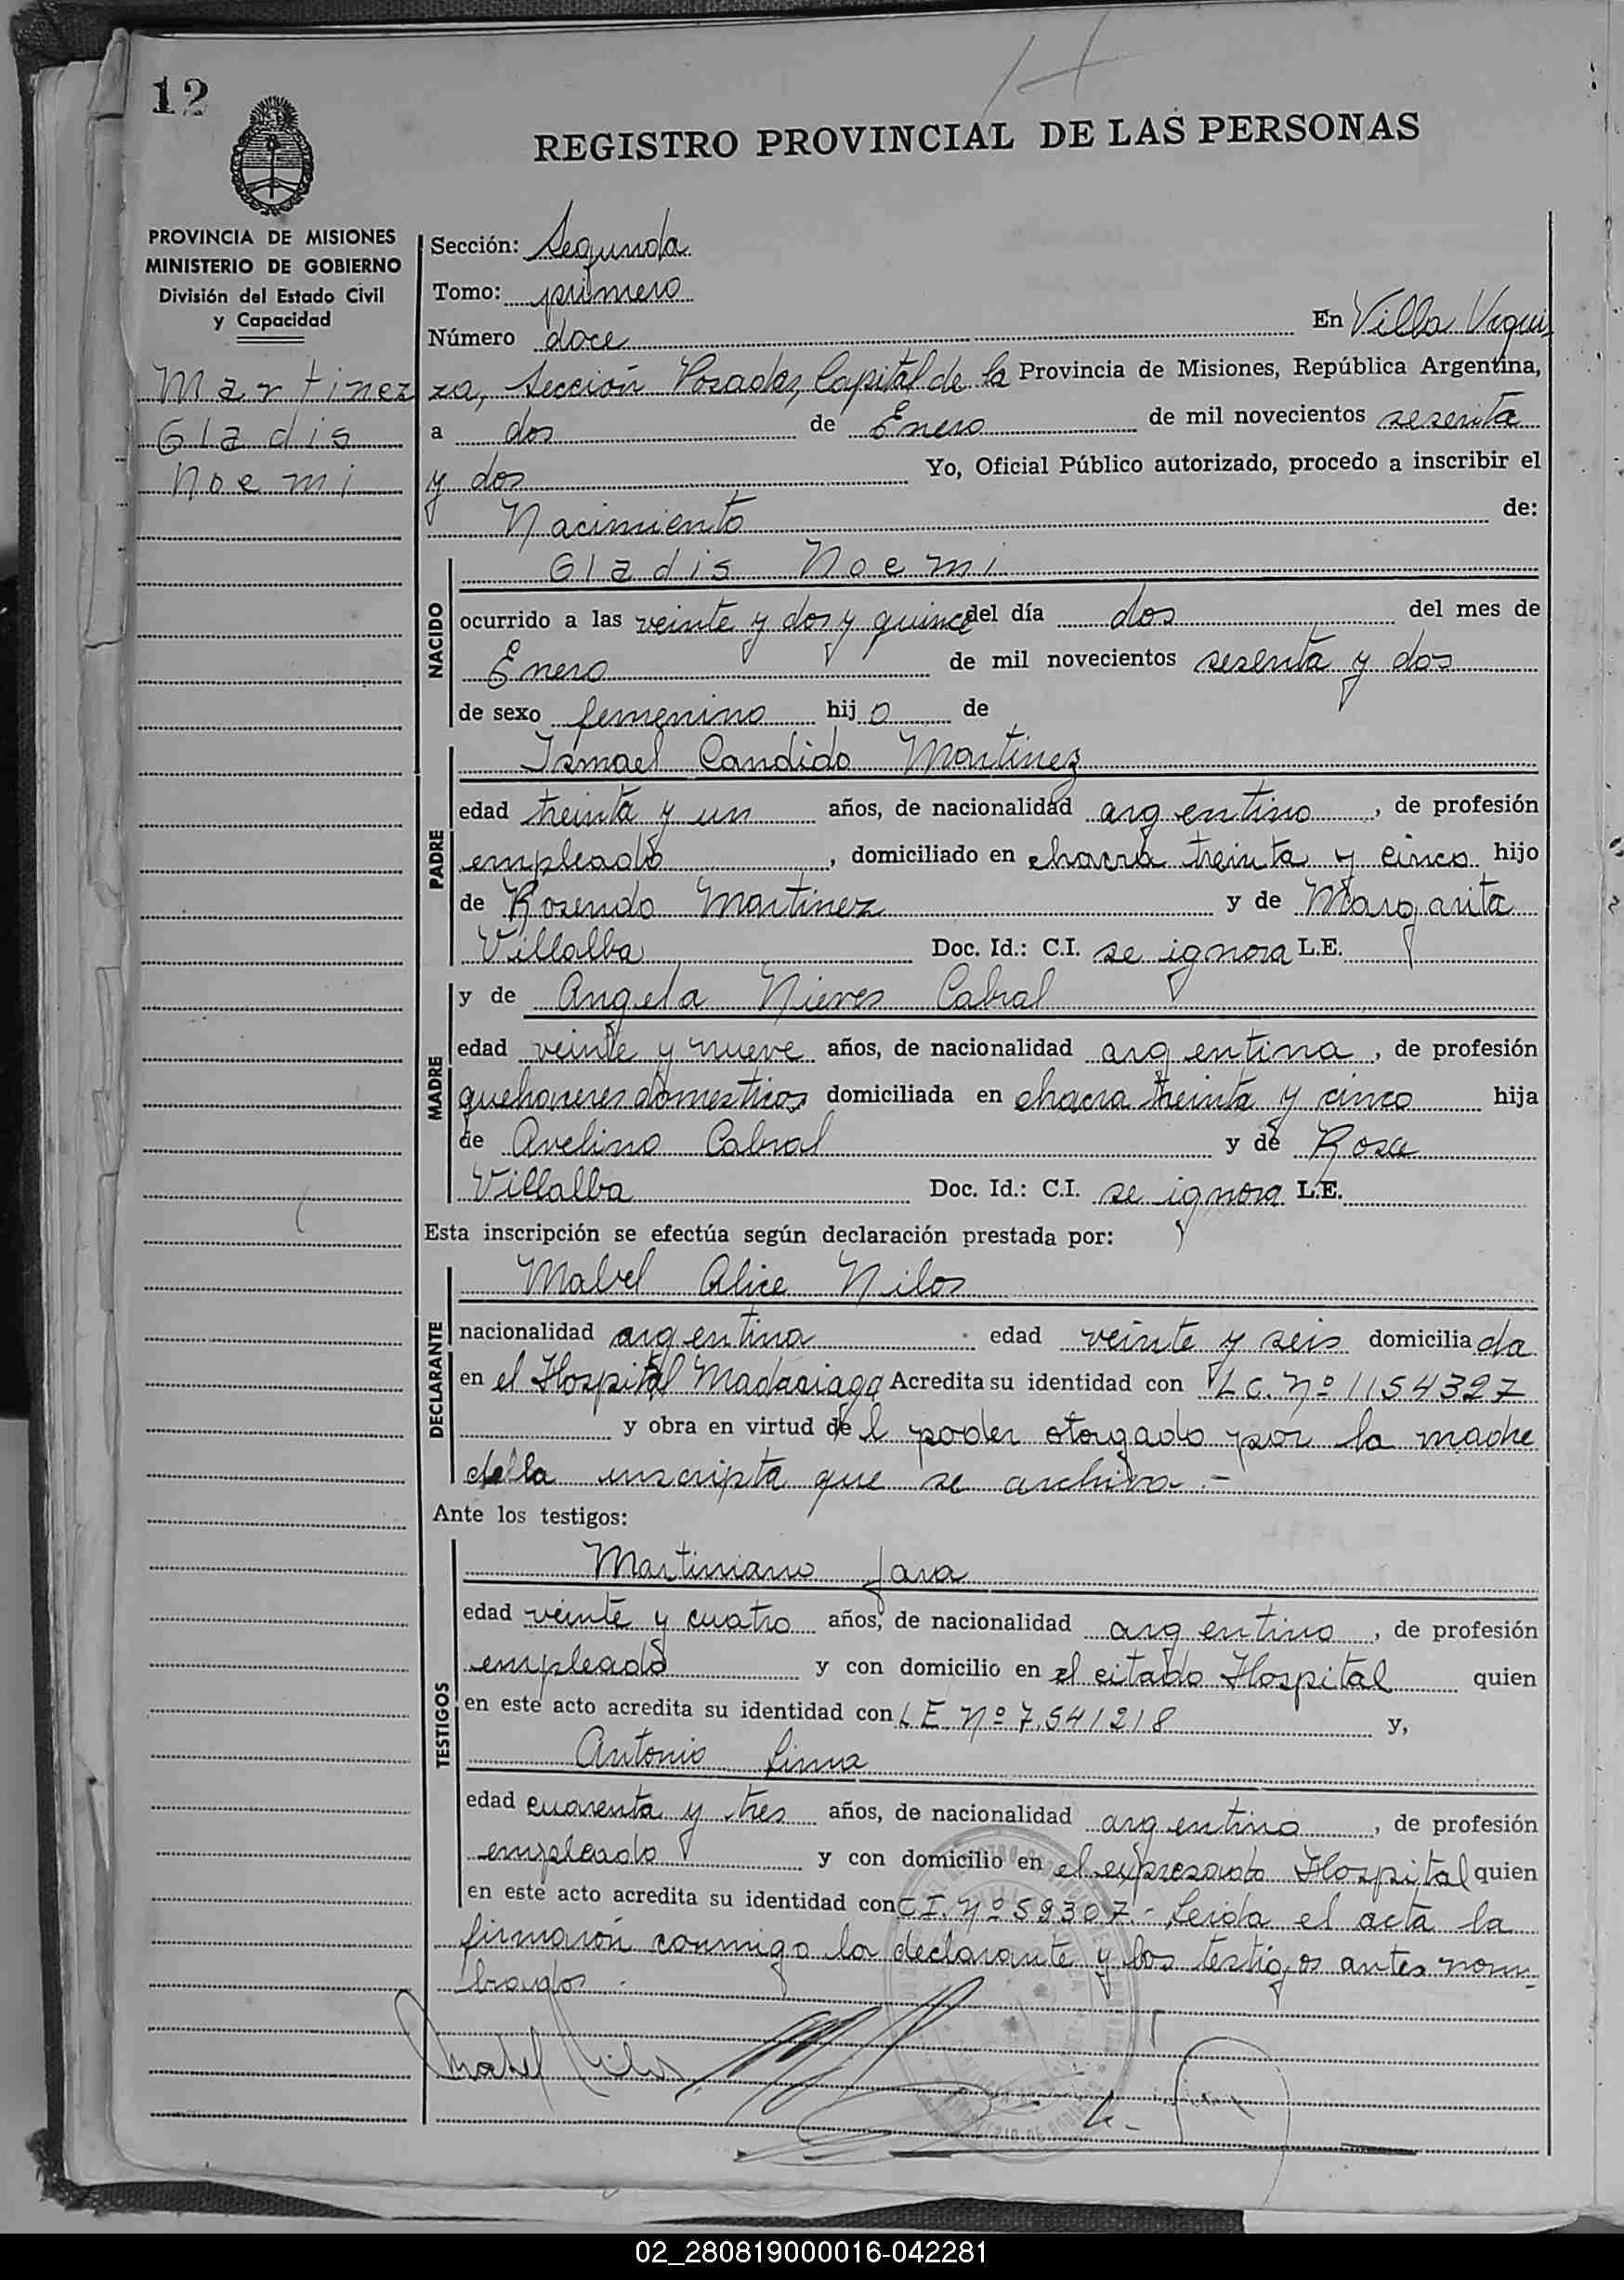 12
REGISTRO PROVINCIAL DE LAS PERSONAS
PROVINCIA DE MISIONES
MINISTERIO DE GOBIERNO
División del Estado Civil
y Capacidad
Martinez
Gladis
Noemi
Sección: Segunda
Tomo: primero
Número doce En Villa Urqui
za, Sección Posadas, Capital de la Provincia de Misiones, República Argentina,
a dos de Enero de mil novecientos sesenta
y dos Yo, Oficial Público autorizado, procedo a inscribir el
Nacimiento de:
NACIDO
Gladis Noemi
ocurrido a las veinte y dos y quince del día dos del mes de
Enero de mil novecientos sesenta y dos
de sexo femenino hij o de
PADRE
Ismael Candido Martinez
edad treinta y un años, de nacionalidad argentino, de profesión
empleado, domiciliado en chacra treinta y cinco hijo
de Rosendo Martinez y de Margarita
Villalba Doc. Id.: C.I. se ignora L.E.
MADRE
y de Angela Nieves Cabral
edad veinte y nueve años, de nacionalidad argentina, de profesión
quehaneres domesticos domiciliada en chacra treinta y cinco hija
de Avelino Cabral y de Rosa
Villalba Doc. Id.: C.I. se ignora L.E.
Esta inscripción se efectúa según declaración prestada por:
DECLARANTE
Mabel Alice Nilos
nacionalidad argentina edad veinte y seis domicilia da
en el Hospital Madariaga Acredita su identidad con L C. Nº 1154327
y obra en virtud de l poder otorgado por la madre
de la inscripta que se archiva.-
Ante los testigos:
TESTIGOS
Martiniano Jara
edad veinte y cuatro años, de nacionalidad argentino, de profesión
empleado y con domicilio en el citado Hospital quien
en este acto acredita su identidad con L E Nº 7.541218 y,
Antonio Lima
edad cuarenta y tres años, de nacionalidad argentino, de profesión
empleado y con domicilio en el expresado Hospital quien
en este acto acredita su identidad con C I. Nº 59307.- Leida el acta la
firmaron conmigo la declarante y los testigos antes nom-
brados.
Mabel Nilos
02_280819000016-042281